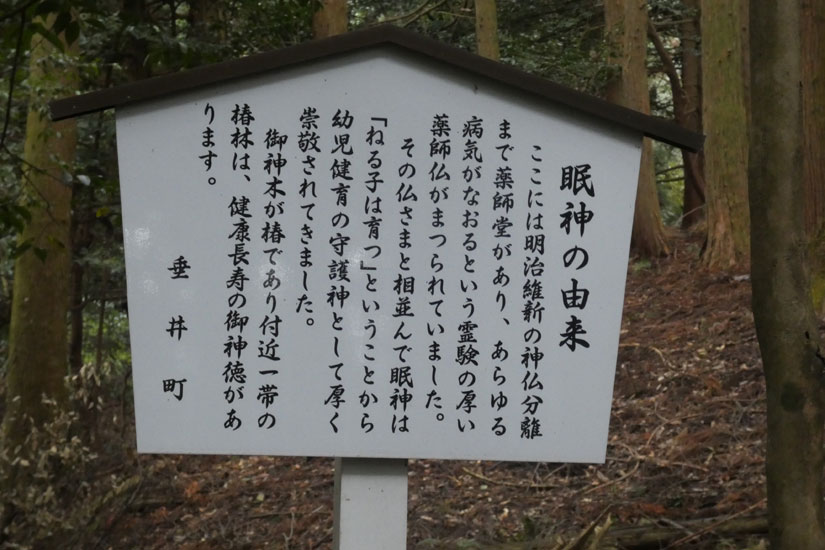 眠神の由来
ここには明治維新の神仏分離
まで薬師堂があり、あらゆる
病気がなおるという霊験の厚い
薬師仏がまつられていました。
その仏さまと相並んで眠神は
「ねる子は育つ」ということから
幼児健育の守護神として厚く
崇敬されてきました。
御神木が椿であり付近一帯の
椿林は、健康長寿の御神徳があ
ります。
垂井町